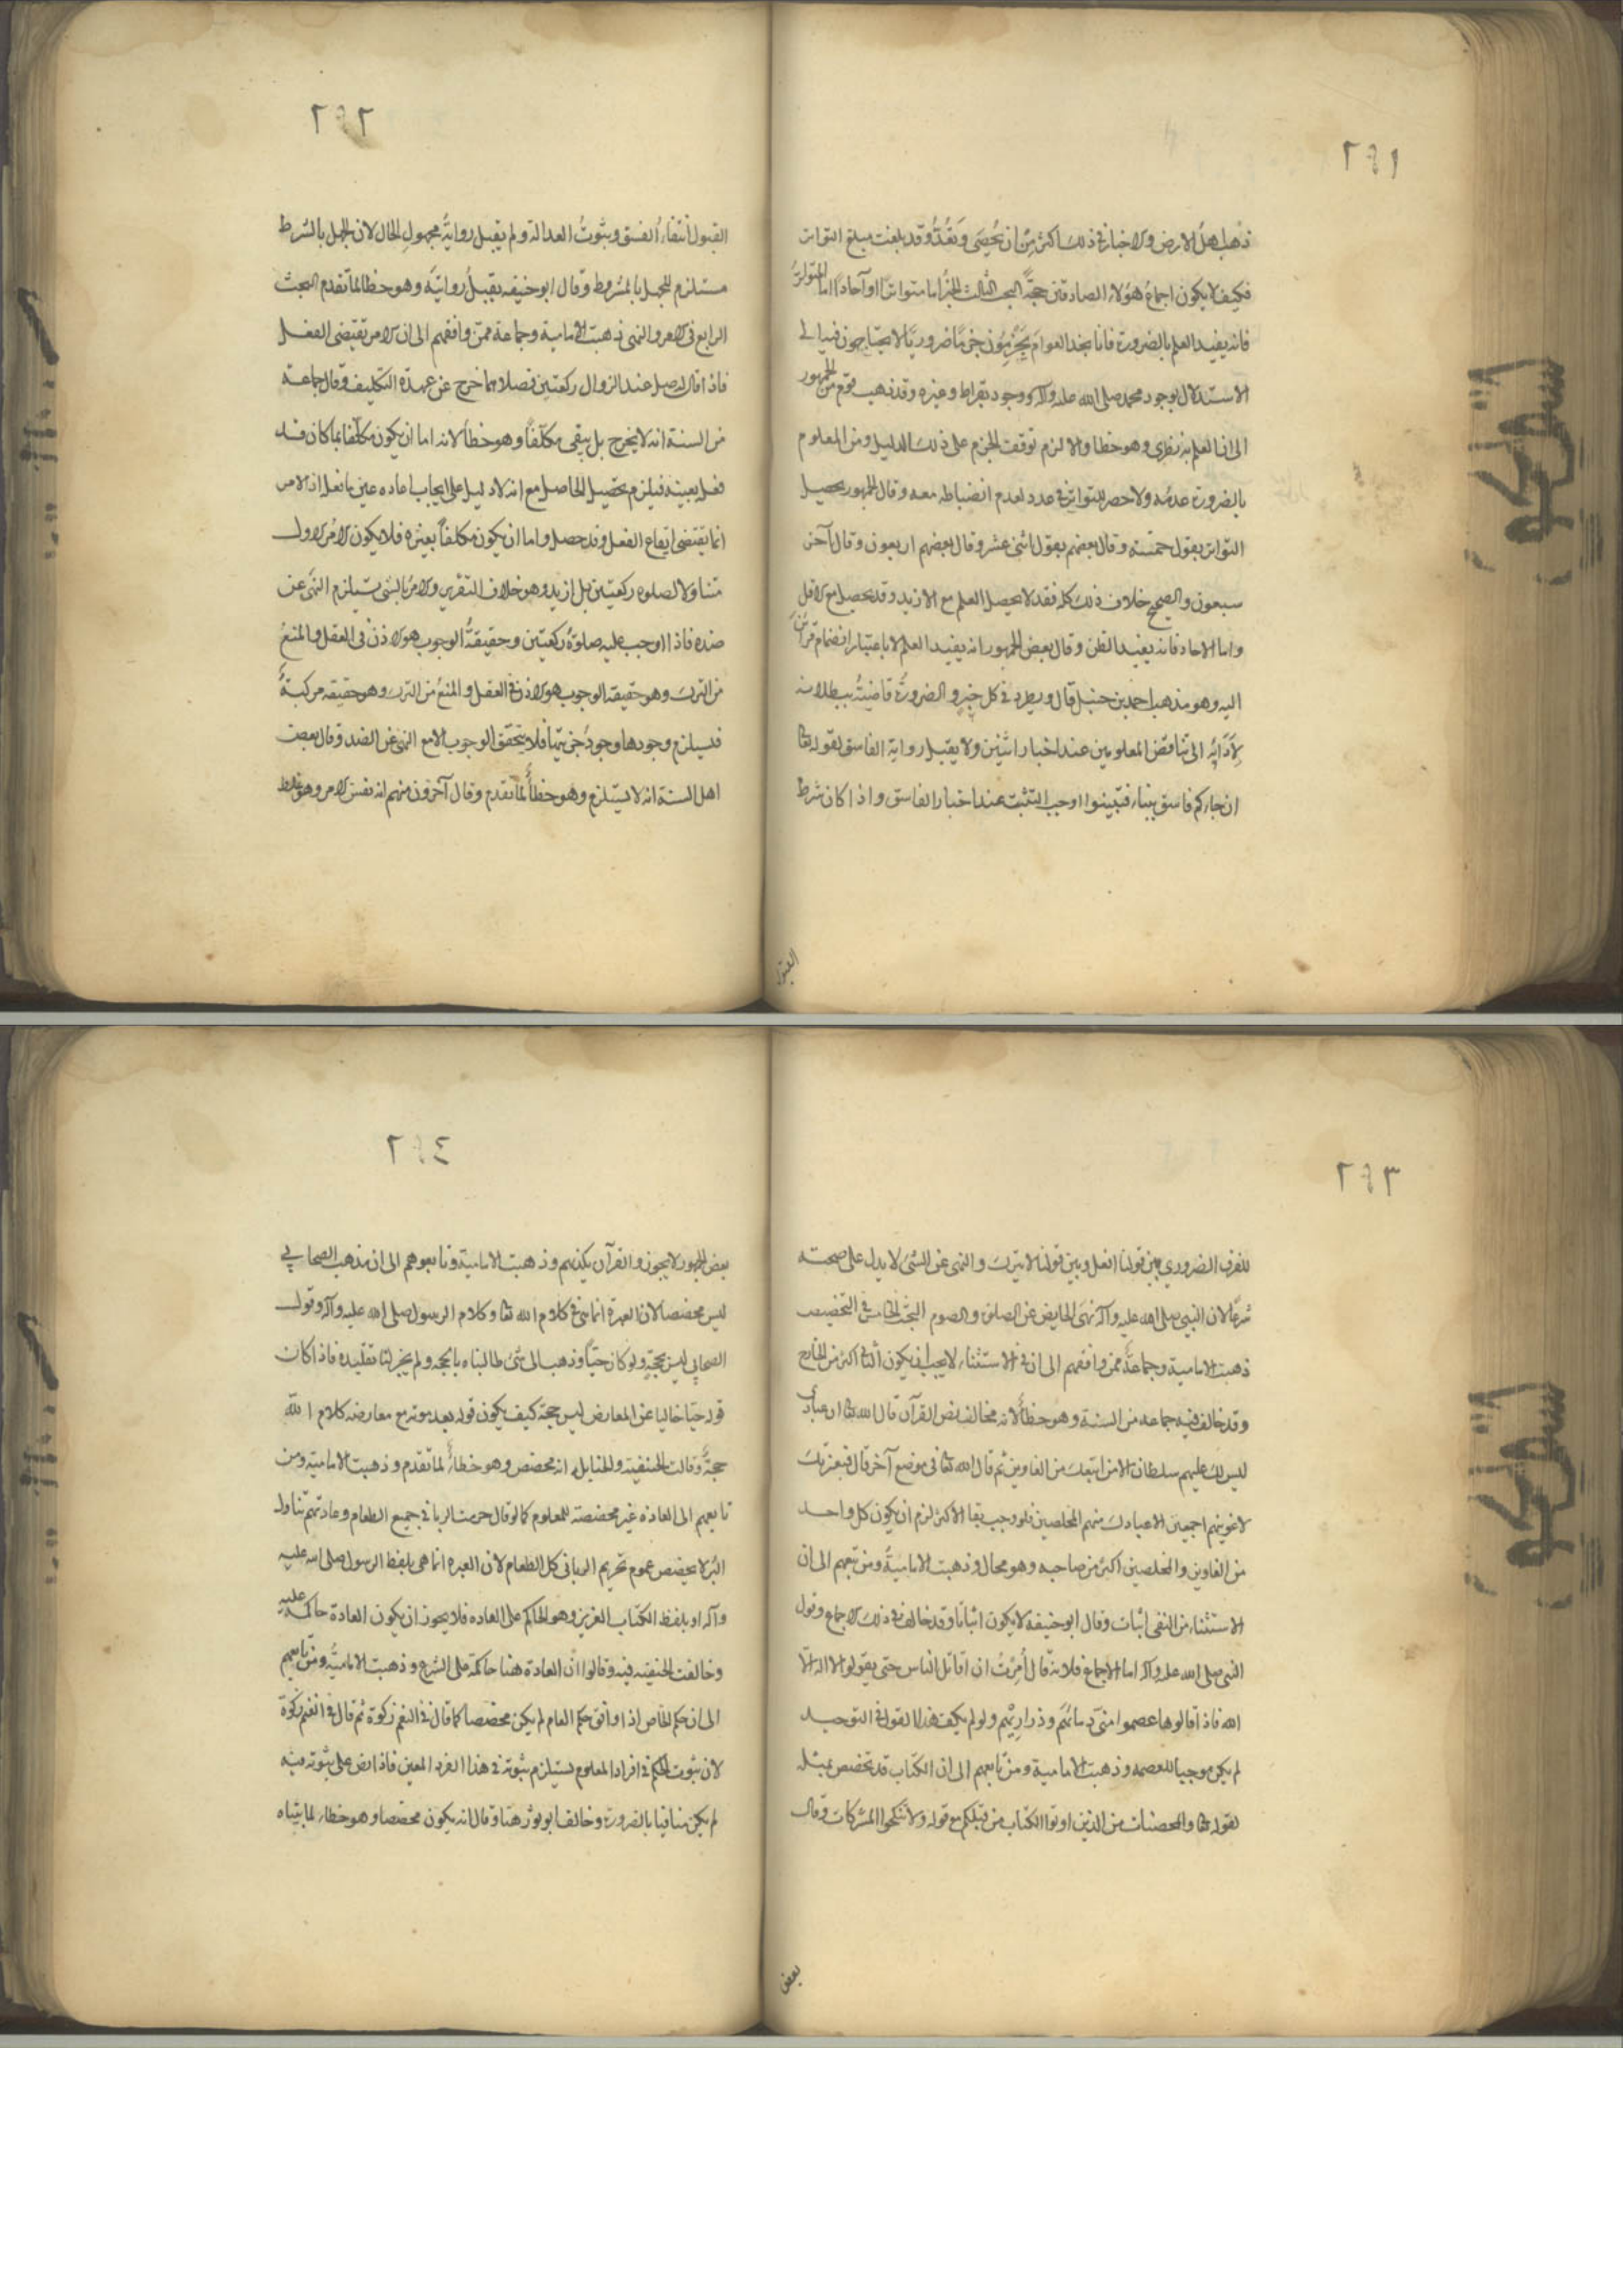 ٢٩١
ذهب اهل الارض والاخبار في ذلك اكثر من ان يحصى ويعد وقد بلغت مبلغ التواتر
فكيف لا يكون اجماع هؤلاء الصادقين حجة البحث الثالث الخبر اما متواترا او آحادا اما المتواتر
فانه يفيد العلم بالضرورة فانا نجد العوام يجزمون جزما ضروريا لا يحتاجون فيه الى
الاستدلال بوجود محمد صلى الله عليه وآله ووجود بقراط وغيره وقد ذهب قوم من الجمهور
الى ان العلم به نظري وهو خطا والا لزم توقف الجزم على ذلك الدليل ومن المعلوم
بالضرورة عدمه ولا حصر للتواتر في عدد لعدم انضباطه معه وقال الجمهور يحصل
التواتر بقول خمسة وقال بعضهم بقول اثنى عشر وقال بعضهم اربعون وقال آخر
سبعون والصحيح خلاف ذلك كله فقد لا يحصل العلم مع الازيد وقد يحصل مع الاقل
واما الاحاد فانه يفيد الظن وقال بعض الجمهور انه يفيد العلم لا باعتبار انضمام قرائن
اليه وهو مذهب احمد بن حنبل قال ويطرد في كل خبر والضرورة قاضية ببطلانه
لادائه الى تناقض المعلومين عند اخبار اثنين ولا يقبل رواية الفاسق لقوله تعا
ان جاءكم فاسق بنباء فتبينوا اوجب التثبت عند اخبار الفاسق واذا كان شرط
القبول
٢٩٢
القبول انتفاء الفسق وثبوت العدالة ولم يقبل رواية مجهول الحال لان الجهل بالشرط
مستلزم للجهل بالمشروط وقال ابو حنيفه يقبل روايته وهو خطا لما تقدم البحث
الرابع في الامر والنهى ذهبت الامامية وجماعة ممن وافقهم الى ان الامر تقتضى الفعل
فاذا قال له صل عند الزوال ركعتين فصلاهما خرج عن عهدة التكليف وقال جماعة
من السنة انه لا يخرج بل يبقى مكلفا وهو خطا لانه اما ان يكون مكلفا بما كان قد
فعل بعينه فيلزم تحصيل الحاصل مع انه لا دليل على ايجاب اعاده عين ما فعل اذ الامر
انما يقتضى ايقاع الفعل وقد حصل واما ان يكون مكلفا بغيره فلا يكون الامر الاول
متناولا لصلوه ركعتين بل ازيد وهو خلاف التقرير والامر بالشئ يستلزم النهى عن
ضده فاذا اوجب عليه صلوة ركعتين وحقيقة الوجوب هو الاذن في الفعل والمنع
من الترك وهو حقيقه الوجوب هو الاذن في الفعل والمنع من الترك وهو حقيقه مركبة
فيستلزم وجودها وجود جزئيها فلا يتحقق الوجوب الا مع النهى عن الضد وقال بعض
اهل السنة انه لا يستلزم وهو خطأ لما تقدم وقال آخرون منهم انه نفس الامر وهو غلط
٢٩٣
للفرق الضروري بين قولنا افعل وبين قولنا لا تترك والنهى عن الشئ لا يدل على صحته
شرعا لان النبي صلى الله عليه وآله نهى الحايض عن الصلوة والصوم البحث الخامس في التخصيص
ذهبت الامامية وجماعة ممن وافقهم الى ان في الاستثناء لا يجب ان يكون الباقى اكثر من الخارج
وقد خالف فيه جماعه من السنة وهو خطأ لانه مخالف نص القرآن قال الله تعا ان عبادي
ليس لك عليهم سلطان الا من اتبعك من الغاوين ثم قال الله تعا في موضع آخر قال فبعزتك
لاغوينهم اجمعين الا عبادك منهم المخلصين فلو وجب بقا الاكثر لزم ان يكون كل واحد
من الغاوين والمخلصين اكثر من صاحبه وهو محال وذهبت الامامية ومن تبعهم الى ان
الاستثناء من النفى اثبات وقال ابو حنيفه لا يكون اثباتا وقد خالف في ذلك الاجماع وقول
النبي صلى الله عليه وآله اما الاجماع فلانه قال امرت ان اقاتل الناس حتى يقولوا لا اله الا
الله فاذا قالوها عصموا منى دمائهم وذراريهم ولو لم يكف هذا القول في التوحيد
لم يكن موجبا للعصمه وذهبت الامامية ومن تابعهم الى ان الكتاب قد تخصص بمثله
لقوله تعا والمحصنات من الذين اوتوا الكتاب من قبلكم مع قوله ولا تنكحوا المشركات وقال
بعض
٢٩٤
بعض الجمهور لا يجوز والقرآن يكذبهم وذهبت الامامية وتابعوهم الى ان مذهب الصحابي
ليس مخصصا لان العبرة انما هي في كلام الله تعا وكلام الرسول صلى الله عليه وآله وقول
الصحابي ليس بحجة ولو كان حيا وذهب الى شئ طالبناه بالحجه ولم يجز لنا تقليده فاذا كان
قوله حيا خاليا عن المعارض ليس حجة كيف يكون قوله بعد موته مع معارضه كلام الله
حجة وقالت الحنفيه والحنابله انه مخصص وهو خطاء لما تقدم وذهبت الامامية ومن
تابعهم الى العاده غير مخصصة للمعلوم كما لو قال حرمت الربا في جميع الطعام وعادتهم تناول
البر لا يخصص عموم تحريم الربا فى كل الطعام لان العبره انما هى بلفظ الرسول صلى الله عليه
وآله او بلفظ الكتاب العزيز وهو الحاكم على العاده فلا يجوز ان يكون العادة حاكمة عليه
وخالفت الحنفيه فيه وقالوا ان العادة هنا حاكمة على الشرع وذهبت الامامية ومن تابعهم
الى ان حكم الخاص اذا وافق حكم العام لم يكن مخصصا كما قال في الغنم زكوة ثم قال في الغنم زكوة
لان ثبوت الحكم في افراد المعلوم يستلزم ثبوته في هذا الفرد المعين فاذا نص على ثبوته فيه
لم يكن منافيا بالضرورة وخالف ابو ثور هنا وقال انه يكون مخصصا وهو خطاء لما بيناه